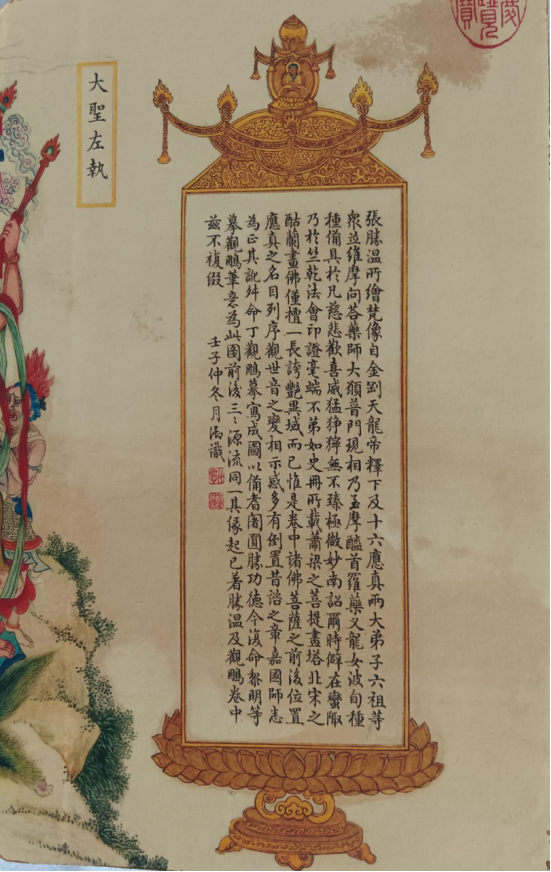 慶覽寶
張勝温所繪梵像自金剛天龍帝釋下及十六應真兩大弟子六祖等
衆並維摩問荅藥師大願普門現相乃至摩醯首羅藥义龍女波旬種
種備具於凡慈悲歡喜威猛猙獰無不臻極微妙南詔爾時僻在蠻陬
乃於竺乾法會印證毫端不第如史冊所載蕭梁之菩提畫塔北宋之
酤蘭畫佛僅擅一長誇艷異域而已惟是卷中諸佛菩薩之前後位置
應真之名目列序觀世音之變相示感多有倒置昔諮之章嘉國師悉
為正其訛舛命丁觀鵬摹寫成圖以備耆闍圓勝功德今復命黎明等
摹觀鵬筆意為此圖前後三〻源流同一具緣起已着勝温及觀鵬卷中
兹不複綴
壬子仲冬月御識
大聖左執